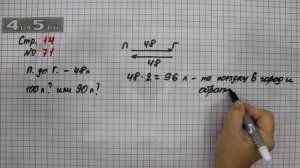 4АВ5.RU
Стр. 14
№ 71
П. до Г. – 48л
100л? или 90л?
П 48 Г
48
48·2 = 96 л – на поездку в город и
обратн